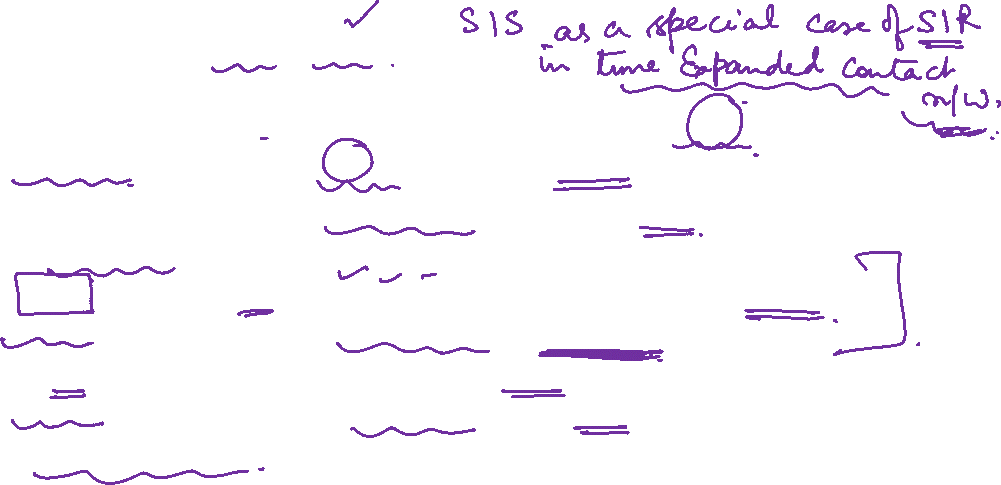 SIS as a special case of SIR
in time Expanded Contact
n/w.